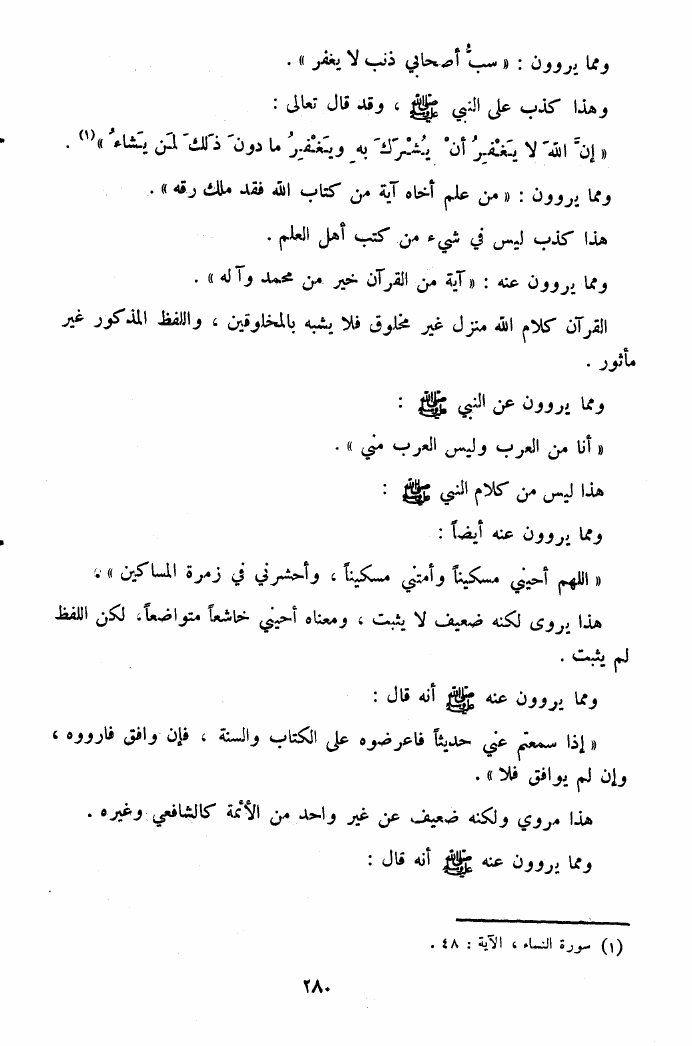 ومما يروون : « سبُّ أصحابي ذنب لا يغفر » .
وهذا كذب على النبي ﷺ ، وقد قال تعالى :
« إنَّ اللهَ لا يَغْفِرُ أنْ يُشْرَكَ بهِ ويَغْفِرُ ما دونَ ذلكَ لمَن يَشاءُ »(١) .
ومما يروون : « من علم أخاه آية من كتاب الله فقد ملك رقه » .
هذا كذب ليس في شيء من كتب أهل العلم .
ومما يروون عنه : « آية من القرآن خير من محمد وآله » .
القرآن كلام الله منزل غير مخلوق فلا يشبه بالمخلوقين ، واللفظ المذكور غير
مأثور .
ومما يروون عن النبي ﷺ :
« أنا من العرب وليس العرب مني » .
هذا ليس من كلام النبي ﷺ :
ومما يروون عنه أيضاً :
« اللهم أحيني مسكيناً وأمتني مسكيناً ، وأحشرني في زمرة المساكين » ،
هذا يروى لكنه ضعيف لا يثبت ، ومعناه أحيني خاشعاً متواضعاً، لكن اللفظ
لم يثبت .
ومما يروون عنه ﷺ أنه قال :
« إذا سمعتم عني حديثاً فاعرضوه على الكتاب والسنة ، فإن وافق فارووه ،
وإن لم يوافق فلا » .
هذا مروي ولكنه ضعيف عن غير واحد من الأئمة كالشافعي وغيره .
ومما يروون عنه ﷺ أنه قال :
(١) سورة النساء ، الآية : ٤٨ .
٢٨٠